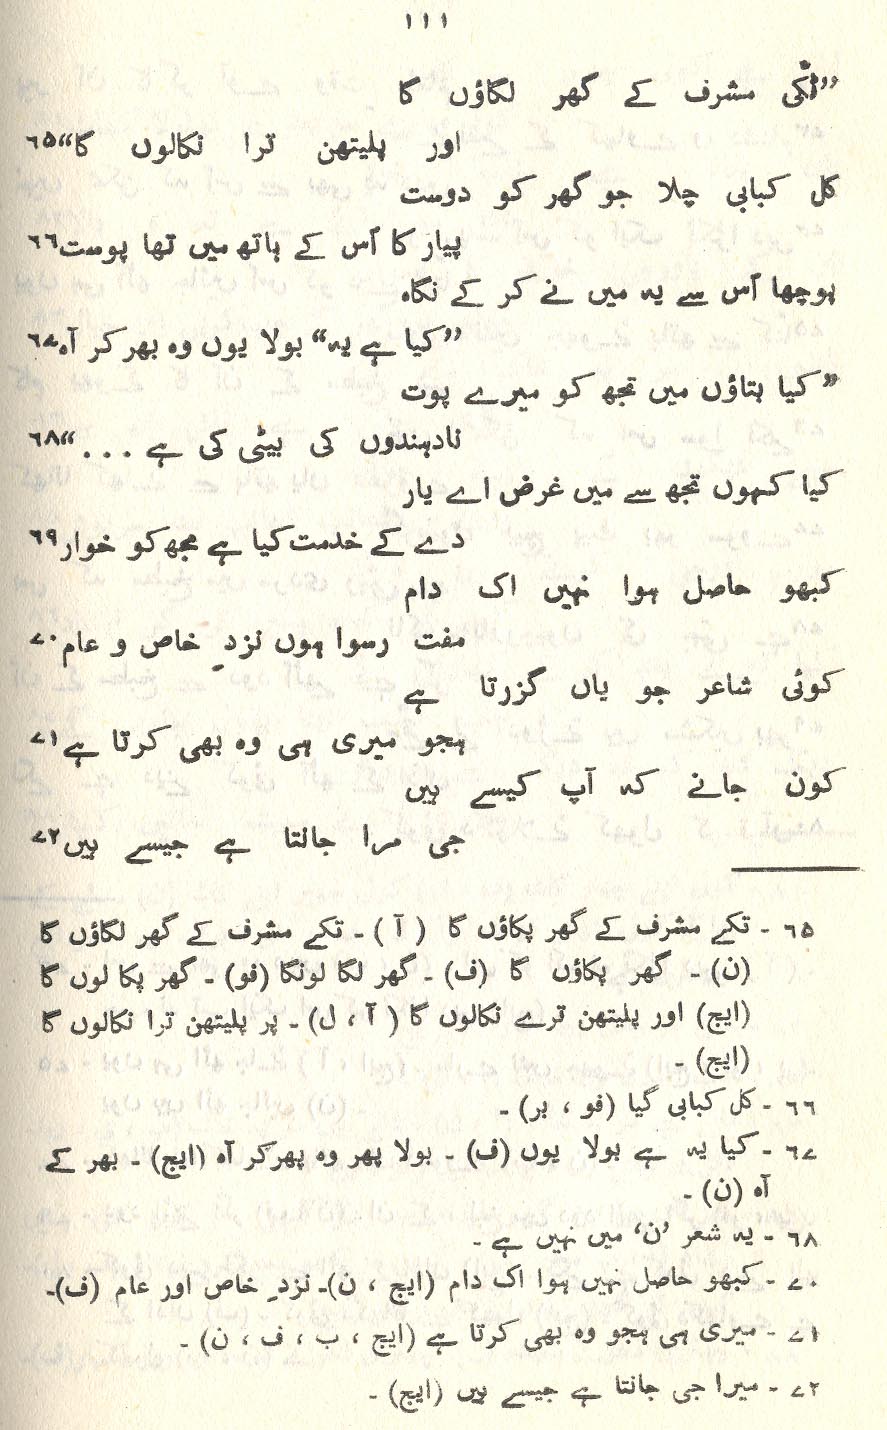 ۱۱۱
”ٹکّی مشرف کے گھر لگاؤں گا
اور پلیتھن ترا نکالوں گا“۶۵
کل کبابی چلا جو گھر کو دوست
پیار کا اُس کے ہاتھ میں تھا پوست۶۶
پوچھا اُس سے یہ میں نے کر کے نگاہ
”کیا ہے یہ“ بولا یوں وہ بھر کر آہ۶۷
”کیا بتاؤں میں تجھ کو میرے پوت
نادہندوں کی بیٹی کی ہے ...“۶۸
کیا کہوں تجھ سے میں غرض اے یار
دے کے خدمت کیا ہے مجھ کو خوار۶۹
کبھو حاصل ہوا نہیں اک دام
مفت رسوا ہوں نزدِ خاص و عام۷۰
کوئی شاعر جو یاں گزرتا ہے
ہجو میری ہی وہ بھی کرتا ہے۷۱
کون جانے کہ آپ کیسے ہیں
جی مرا جالتا ہے جیسے ہیں۷۲
۶۵ - تکے مشرف کے گھر پکاؤں گا (آ) - تکے مشرف کے گھر لگاؤں گا
(ن) - گھر پکاؤں گا (ف) - گھر لگا لونگا (فو) - گھر پکا لوں گا
(ایچ) اور پلیتھن ترے نکالوں گا (آ ، ل) - پر پلیتھن ترا نکالوں گا
(ایچ) -
۶۶ - کل کبابی گیا (فو ، بر) -
۶۷ - کیا یہ ہے بولا یوں (ف) - بولا پھر وہ پھر کر آہ (ایچ) - بھر کے
آہ (ن) -
۶۸ - یہ شعر ’ن‘ میں نہیں ہے -
۷۰ - کبھو حاصل نہیں ہوا اک دام (ایچ ، ن)- نزدِ خاص اور عام (ف)-
۷۱ - میری ہی ہجو وہ بھی کرتا ہے (ایچ ، ب ، ف ، ن) -
۷۲ - میرا جی جانتا ہے جیسے ہیں (ایچ) -